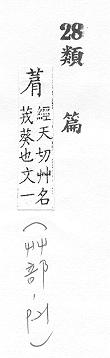 28類篇
菺
經天切艸名
茙葵也文一
(艸部,